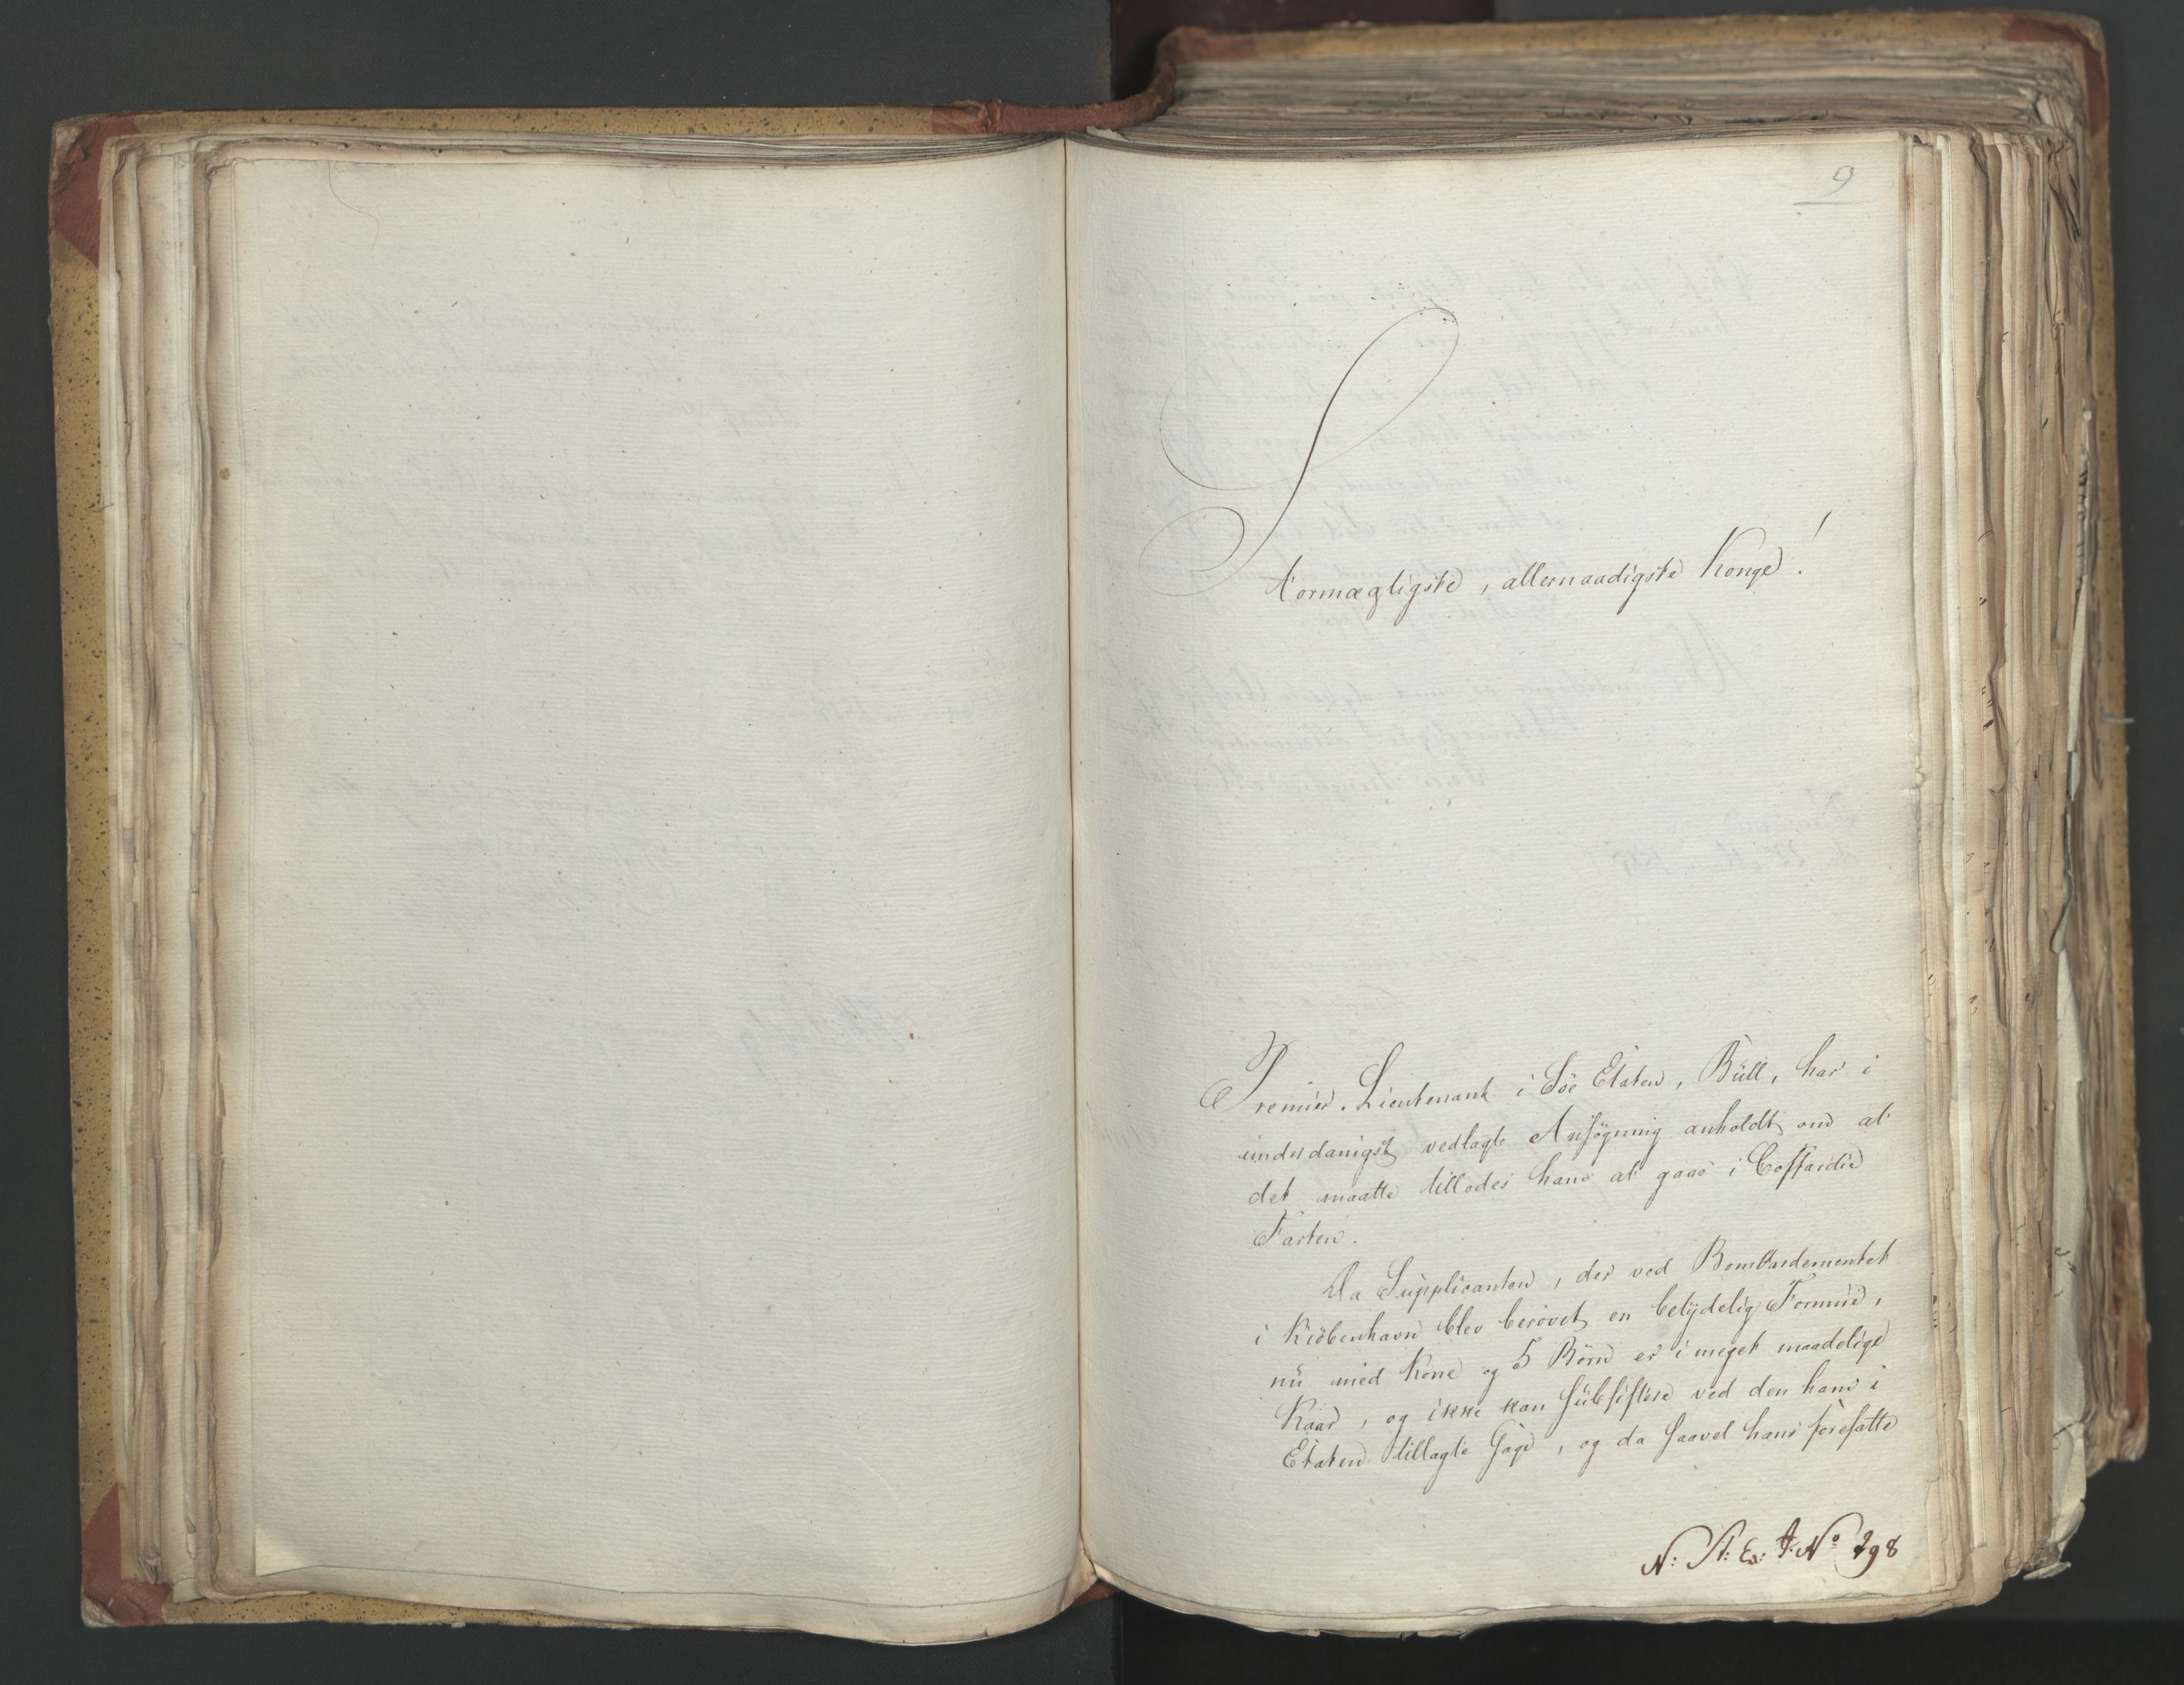 9
Stormægtigste, allernaadigste Konge!
Premier-Lieutenant i Söe Etaten, Büll, har i
underdanigst vedlagte Ansögning anholdt om at
det maatte tillades ham at gaae i Coffardie
Farten.
Da Supplicanten, der ved Bombardementet
i Kiöbenhavn blev berövet en betydelig Formue,
nu med Kone og 5 Börn er i meget maadelige
Kaar, og ikke kan subsistere ved den ham i
Etaten tillagte Gage, og da saavel hans foresatte
N: St: Ex: J: No 298